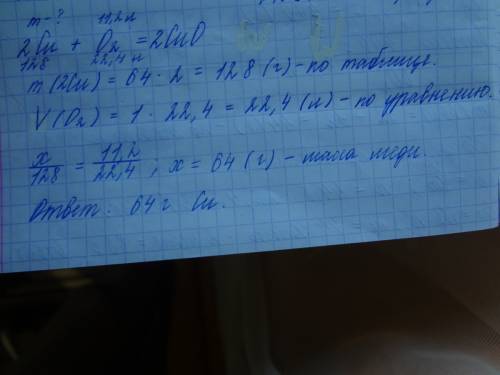 m-? 11,2 л
2Cu + O2 = 2CuO
128 22,4 л
m(2Cu) = 64 · 2 = 128 (г) - по таблице.
V(O2) = 1 · 22,4 = 22,4 (л) - по уравнению.
x/128 = 11,2/22,4 ; x = 64 (г) - масса меди.
Ответ: 64 г Cu.